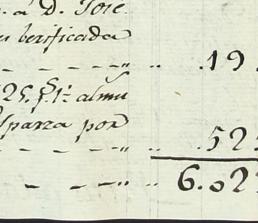 . a D. Jose
berificada
19.
25. f. 1º almu
sparza por
525
6.02